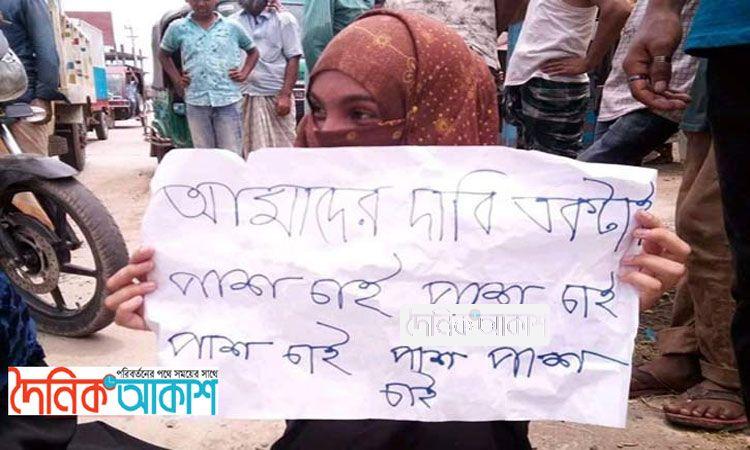 আমাদের দাবি একটাই
পাশ চাই পাশ চাই
দৈনিক আকাশ
পাশ চাই পাশ পাশ
চাই
পরিবর্তনের পথে সময়ের সাথে
দৈনিক আকাশ